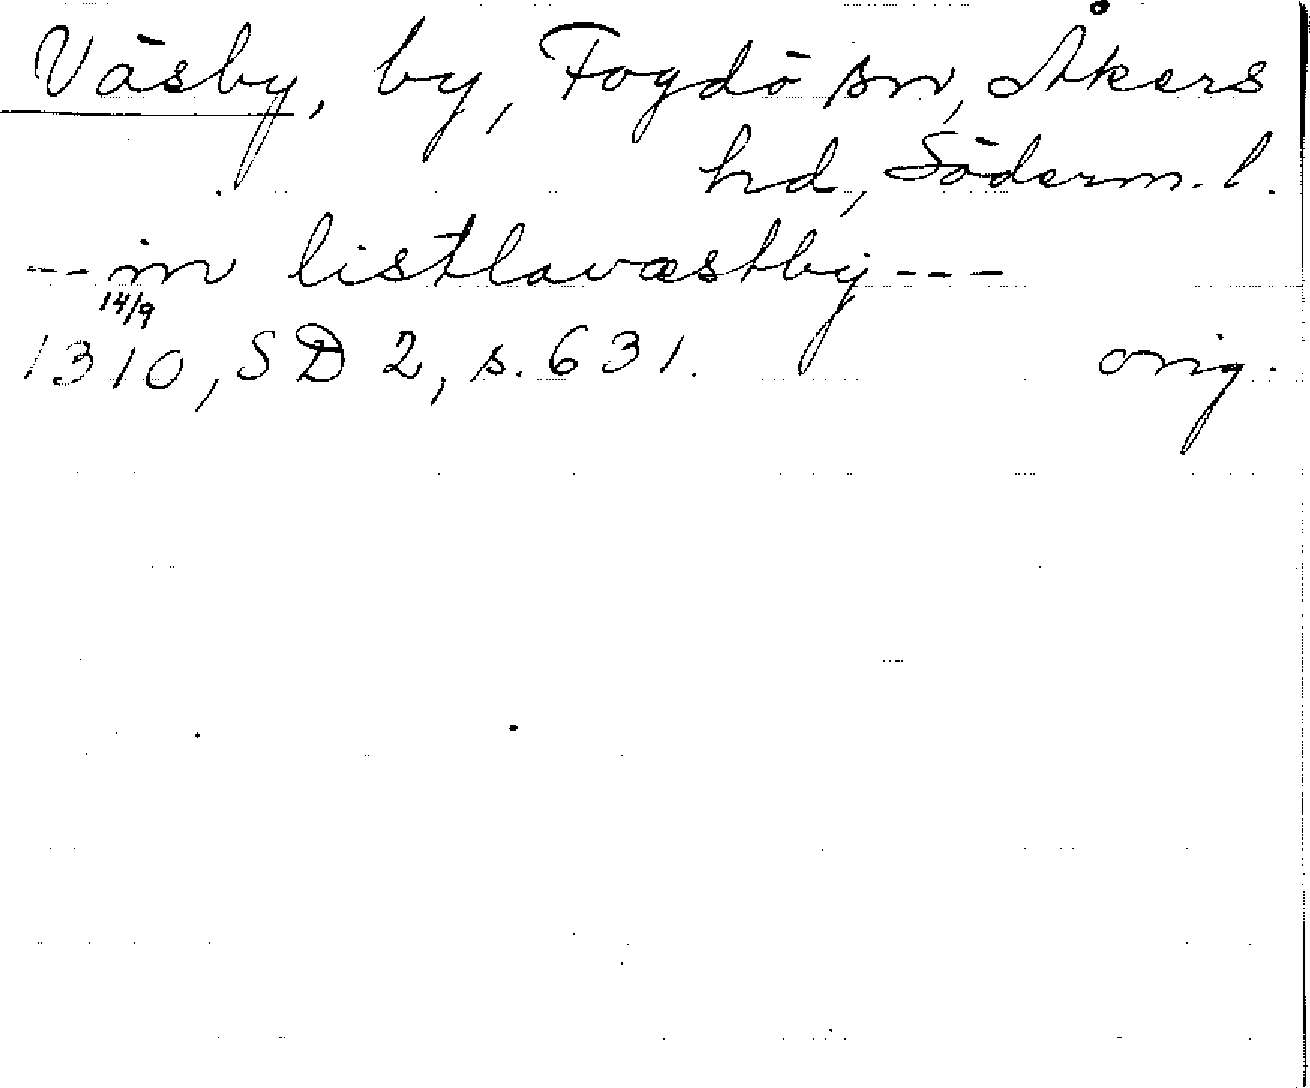 Väsby, by, Fogdö sn, Åkers
hd, Söderm. l.
--- in listlavæstby ---
14/9
1310, SD 2, s. 631. orig.